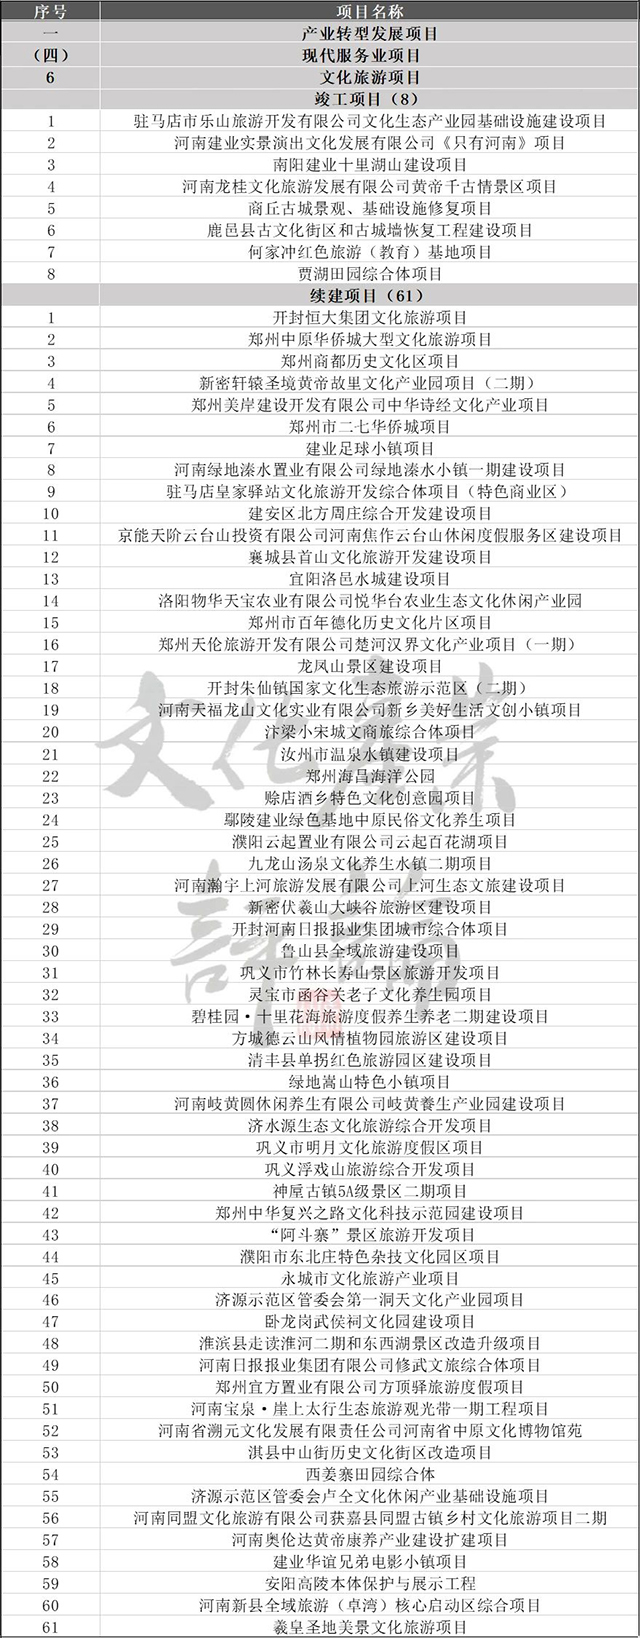 序号 项目名称
一 产业转型发展项目
（四） 现代服务业项目
6 文化旅游项目
竣工项目（8）
1 驻马店市乐山旅游开发有限公司文化生态产业园基础设施建设项目
2 河南建业实景演出文化发展有限公司《只有河南》项目
3 南阳建业十里湖山建设项目
4 河南龙桂文化旅游发展有限公司黄帝千古情景区项目
5 商丘古城景观、基础设施修复项目
6 鹿邑县古文化街区和古城墙恢复工程建设项目
7 何家冲红色旅游（教育）基地项目
8 贾湖田园综合体项目
续建项目（61）
1 开封恒大集团文化旅游项目
2 郑州中原华侨城大型文化旅游项目
3 郑州商都历史文化区项目
4 新密轩辕圣境黄帝故里文化产业园项目（二期）
5 郑州美岸建设开发有限公司中华诗经文化产业项目
6 郑州市二七华侨城项目
7 建业足球小镇项目
8 河南绿地溱水置业有限公司绿地溱水小镇一期建设项目
9 驻马店皇家驿站文化旅游开发综合体项目（特色商业区）
10 建安区北方周庄综合开发建设项目
11 京能天阶云台山投资有限公司河南焦作云台山休闲度假服务区建设项目
12 襄城县首山文化旅游开发建设项目
13 宜阳洛邑水城建设项目
14 洛阳物华天宝农业有限公司悦华台农业生态文化休闲产业园
15 郑州市百年德化历史文化片区项目
16 郑州天伦旅游开发有限公司楚河汉界文化产业项目（一期）
17 龙凤山景区建设项目
18 开封朱仙镇国家文化生态旅游示范区（二期）
19 河南天福龙山文化实业有限公司新乡美好生活文创小镇项目
20 汴梁小宋城文商旅综合体项目
21 汝州市温泉水镇建设项目
22 郑州海昌海洋公园
23 赊店酒乡特色文化创意园项目
24 鄢陵建业绿色基地中原民俗文化养生项目
25 濮阳云起置业有限公司云起百花湖项目
26 九龙山汤泉文化养生水镇二期项目
27 河南瀚宇上河旅游发展有限公司上河生态文旅建设项目
28 新密伏羲山大峡谷旅游区建设项目
29 开封河南日报报业集团城市综合体项目
30 鲁山县全域旅游建设项目
31 巩义市竹林长寿山景区旅游开发项目
32 灵宝市函谷关老子文化养生园项目
33 碧桂园·十里花海旅游度假养生养老二期建设项目
34 方城德云山风情植物园旅游区建设项目
35 清丰县单拐红色旅游园区建设项目
36 绿地嵩山特色小镇项目
37 河南岐黄圆休闲养生有限公司岐黄養生产业园建设项目
38 济水源生态文化旅游综合开发项目
39 巩义市明月文化旅游度假区项目
40 巩义浮戏山旅游综合开发项目
41 神垕古镇5A级景区二期项目
42 郑州中华复兴之路文化科技示范园建设项目
43 “阿斗寨”景区旅游开发项目
44 濮阳市东北庄特色杂技文化园区项目
45 永城市文化旅游产业项目
46 济源示范区管委会第一洞天文化产业园项目
47 卧龙岗武侯祠文化园建设项目
48 淮滨县走读淮河二期和东西湖景区改造升级项目
49 河南日报报业集团有限公司修武文旅综合体项目
50 郑州宜方置业有限公司方顶驿旅游度假项目
51 河南宝泉·崖上太行生态旅游观光带一期工程项目
52 河南省溯元文化发展有限责任公司河南省中原文化博物馆苑
53 淇县中山街历史文化街区改造项目
54 西姜寨田园综合体
55 济源示范区管委会卢仝文化休闲产业基础设施项目
56 河南同盟文化旅游有限公司获嘉县同盟古镇乡村文化旅游项目二期
57 河南奥伦达黄帝康养产业建设扩建项目
58 建业华谊兄弟电影小镇项目
59 安阳高陵本体保护与展示工程
60 河南新县全域旅游（卓湾）核心启动区综合项目
61 羲皇圣地美景文化旅游项目
文化產業
評論